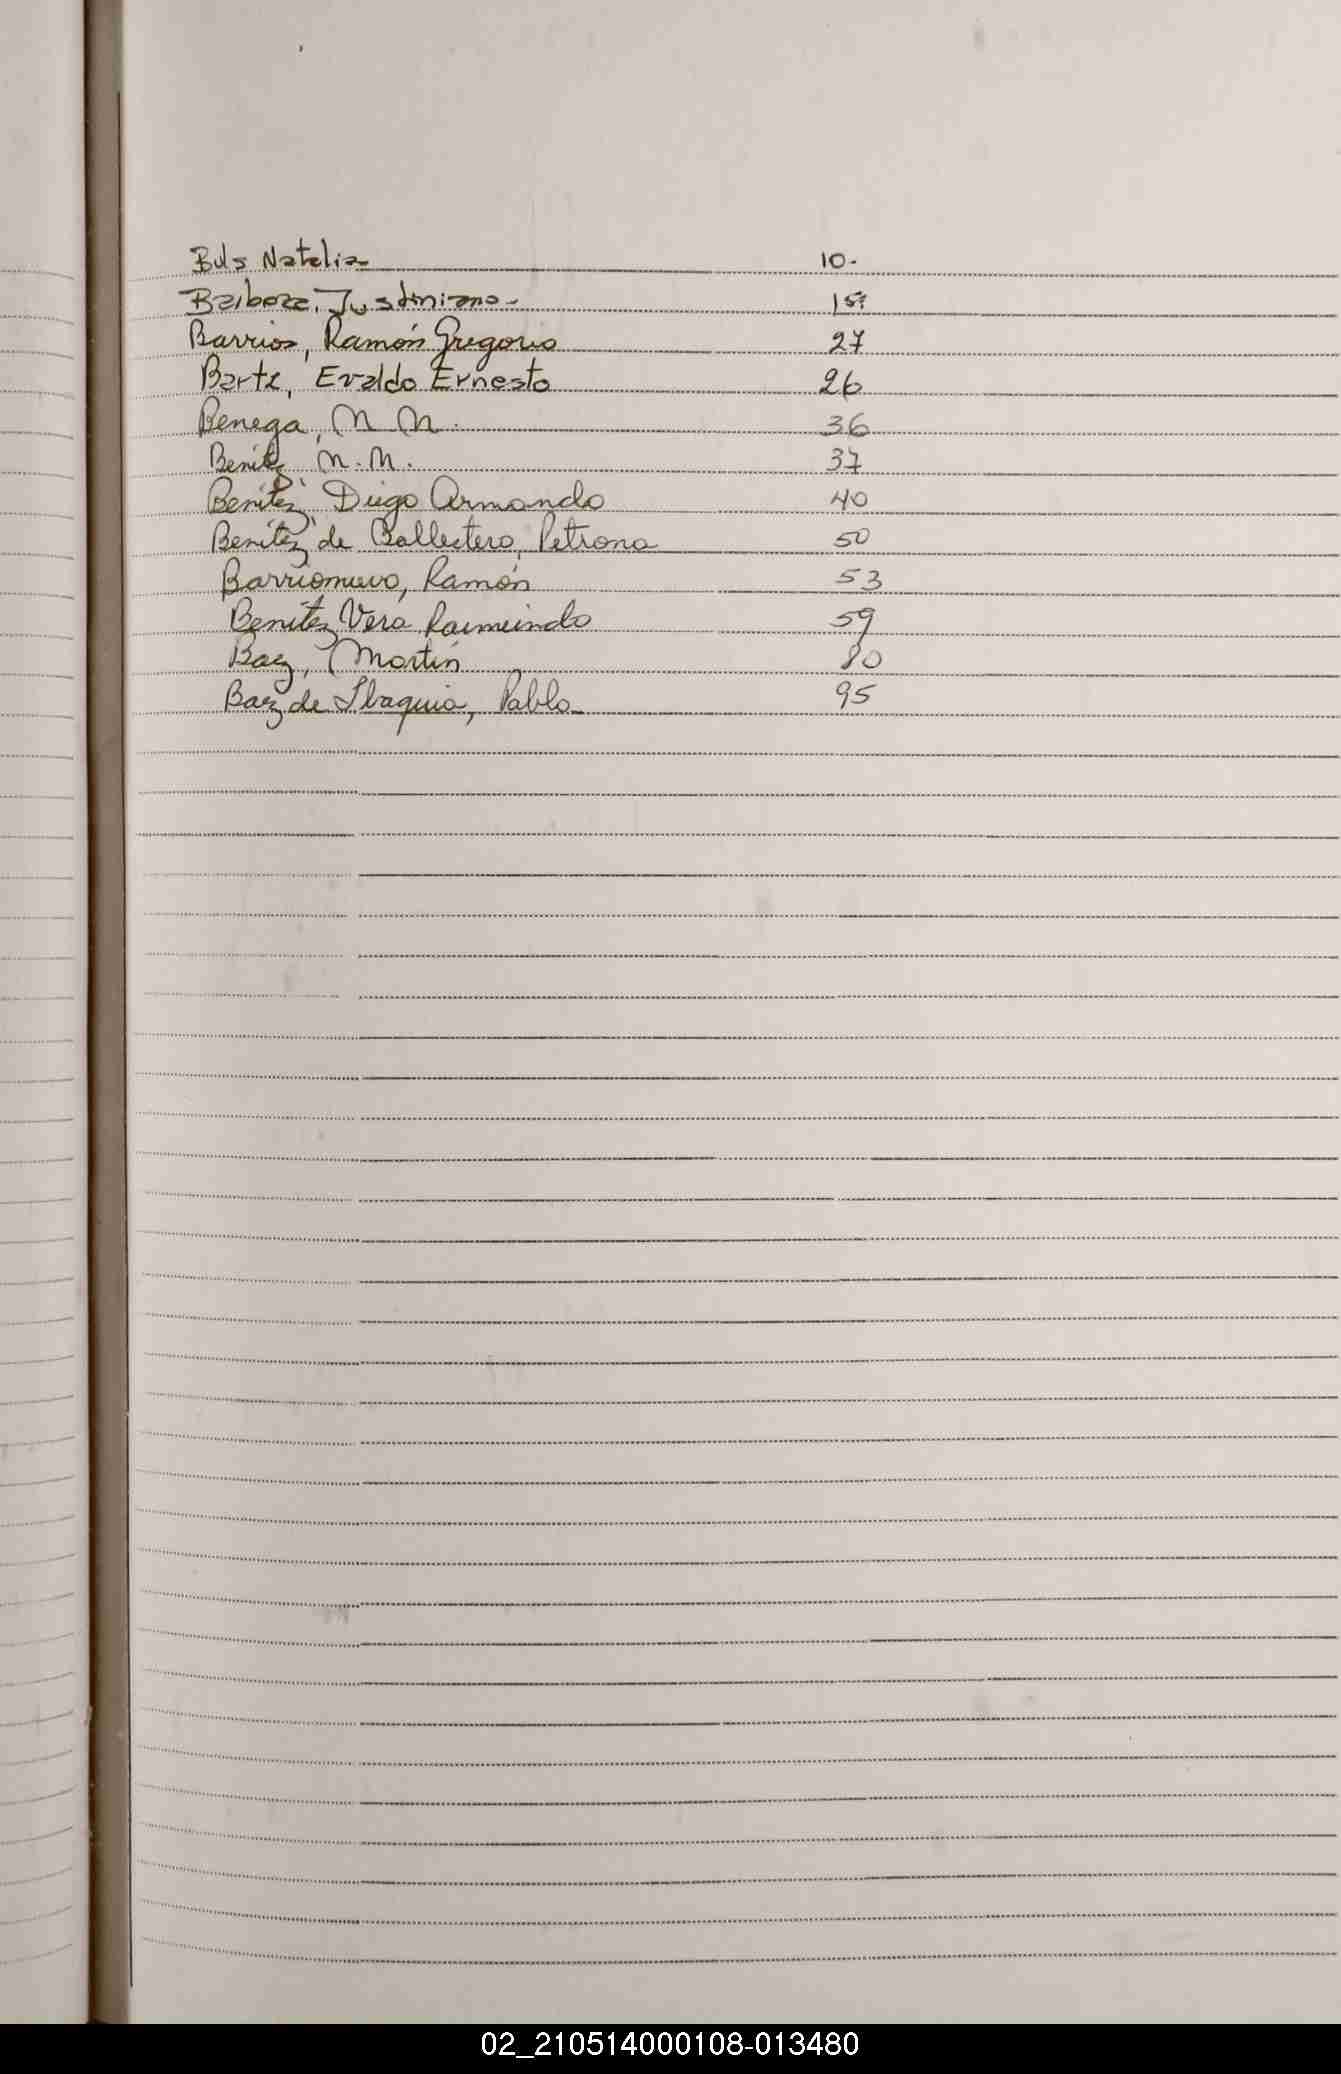 Buls Natalia 10.
Barboza, Justiniano 15
Barrios, Ramón Gregorio 27
Bartz, Evaldo Ernesto 26
Benega, N N. 36
Benitez N.N. 37
Benítez, Diego Armando 40
Benítez, de Ballestero, Petrona 50
Barrionuevo, Ramón 53
Benítez Vera Raimundo 59
Baez, Martín 80
Baez de Pablo 95
02_210514000108-013480